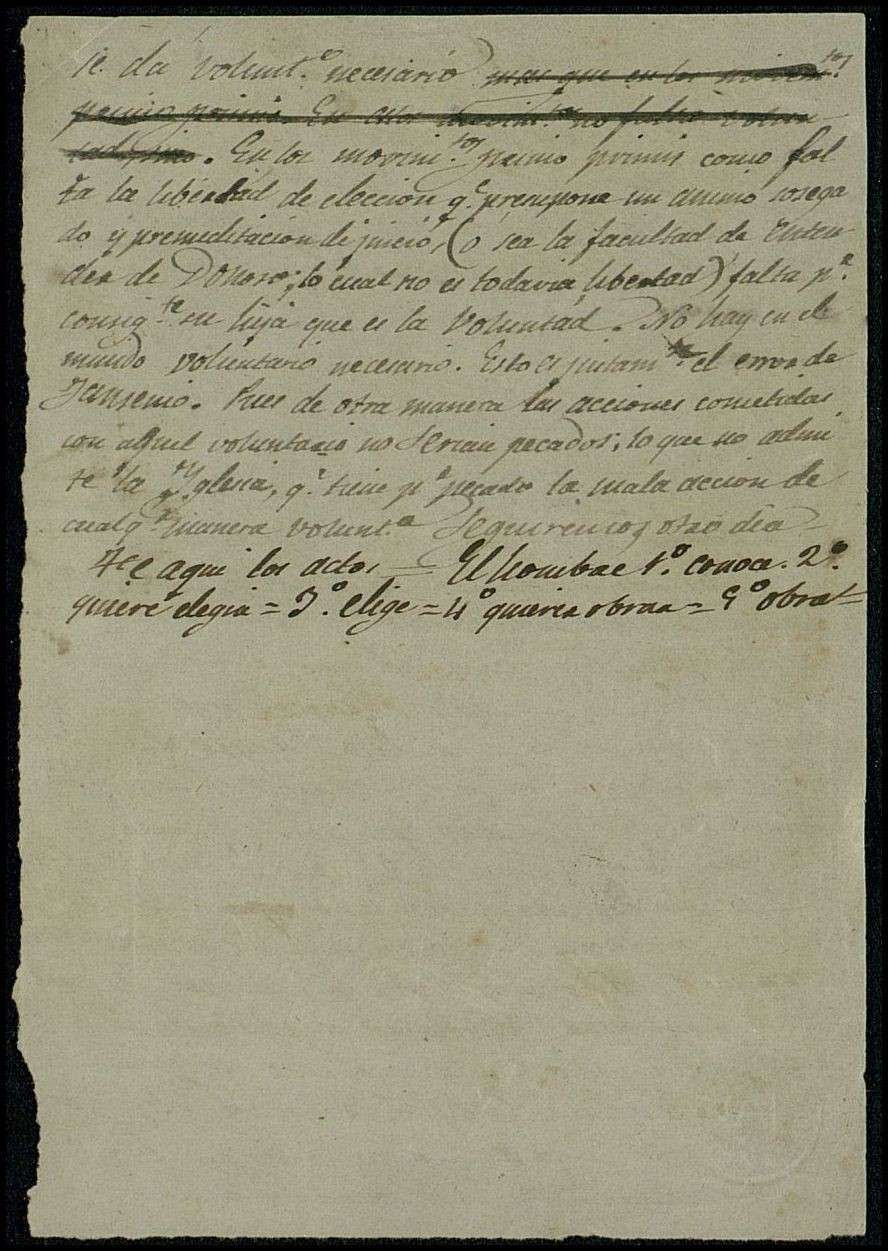 se da volunt.º necesario mas que en los movim.tos
primo primis. En estos movim.tos no falta volun-
tad, sino. En los movim.tos primo primis como fal
ta la libertad de eleccion q.e presupone un animo sosega
do y premeditacion de juicio, (o sea la facultad de enten-
der de Donoso; lo cual no es todavia libertad) falta p.r
consig.te su hija que es la voluntad. No hay en el
mundo voluntario necesario. Esto es justam.te el error de
Jansenio. Pues de otra manera las acciones cometidas
con aquel voluntario no serian pecados; lo que no admi
te la Yglesia, q.e tiene p.r pecado la mala accion de
cualq.r manera volunt.a Seguiremos otro dia
He aqui los actos = El hombre 1.º conoce. 2.º
quiere elegir = 3.º elige = 4.º quiere obrar = 5.º obra =